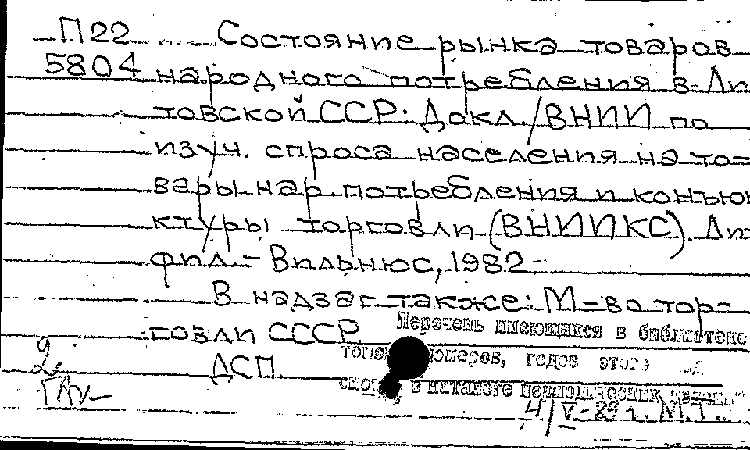 П22 Состояние рынка товаров
5804 народного потребления в Ли
товской ССР: Докл./ВНИИ по
изуч. спроса населения на то-
вары нар. потребления и конъюн
ктуры торговли (ВНИИКС). Ли
фил. - Вильнюс, 1982-
В надзаг. также: М-во тор-
говли СССР
ДСП.
2
Перечень имеющихся в библиотеке
томов, номеров, годов этого
в каталоге периодических
4/V-83 г.